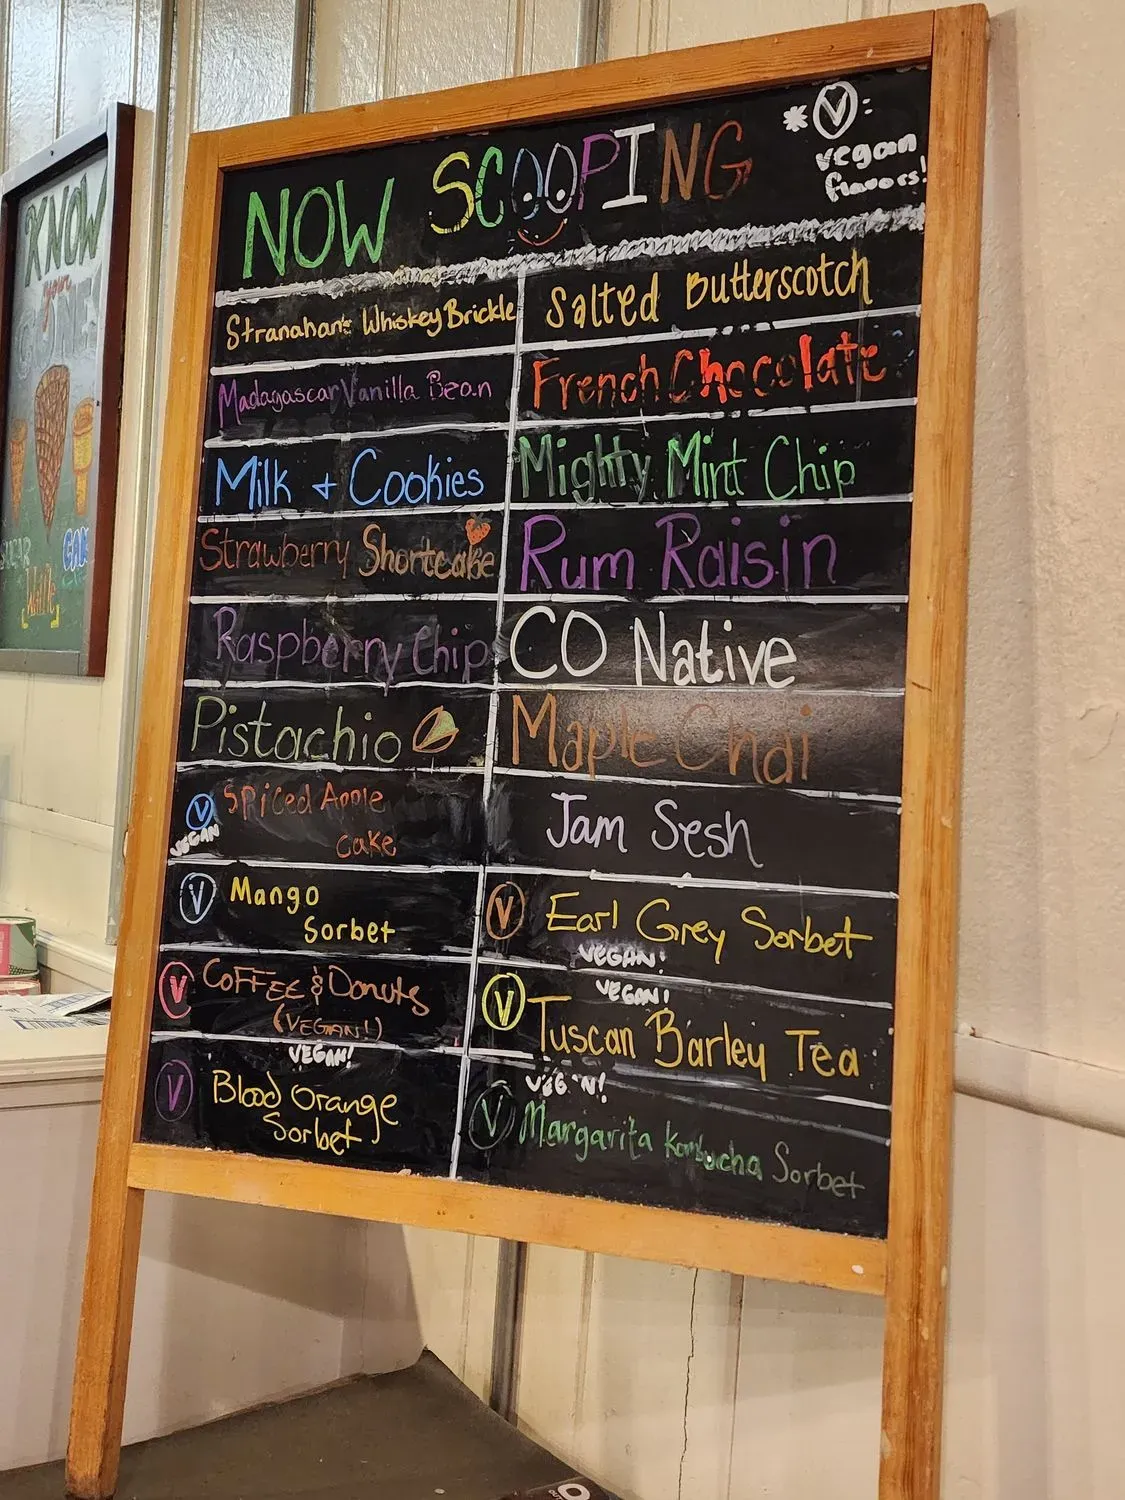 NOW SCOOPING
* V:
vegan
flavors!
Stranahan's Whiskey Brickle
Madagascar Vanilla Bean
Milk + Cookies
Strawberry Shortcake
Raspberry Chip
Pistachio
V Spiced Apple
VEGAN
Cake
V Mango
Sorbet
V COFFEE & Donuts
(VEGAN!)
VEGAN!
V Blood Orange
Sorbet
Salted Butterscotch
French Chocolate
Mighty Mint Chip
Rum Raisin
CO Native
Maple Chai
Jam Sesh
V Earl Grey Sorbet
VEGAN!
VEGAN!
V Tuscan Barley Tea
VEGAN!
V Margarita Kombucha Sorbet
KNOW
your
CONE!
SUGAR
CAKE
Waffle